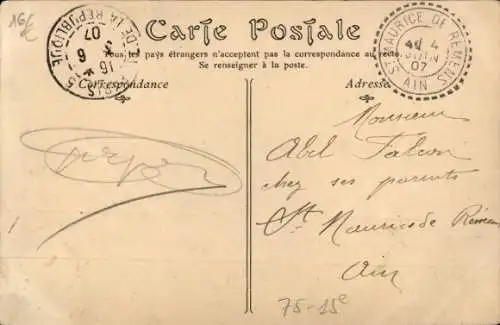 16€
Carte Postale
Tous les pays étrangers n'acceptent pas la correspondance au recto.
Se renseigner à la poste.
Correspondance
Adresse
DE LA RÉPUBLIQUE
16
6
07
ST MAURICE DE REMENS
4
JUIN
07
AIN
Monsieur
Abel Falcon
chez ses parents
St Maurice de Rémens
Ain
75-15e